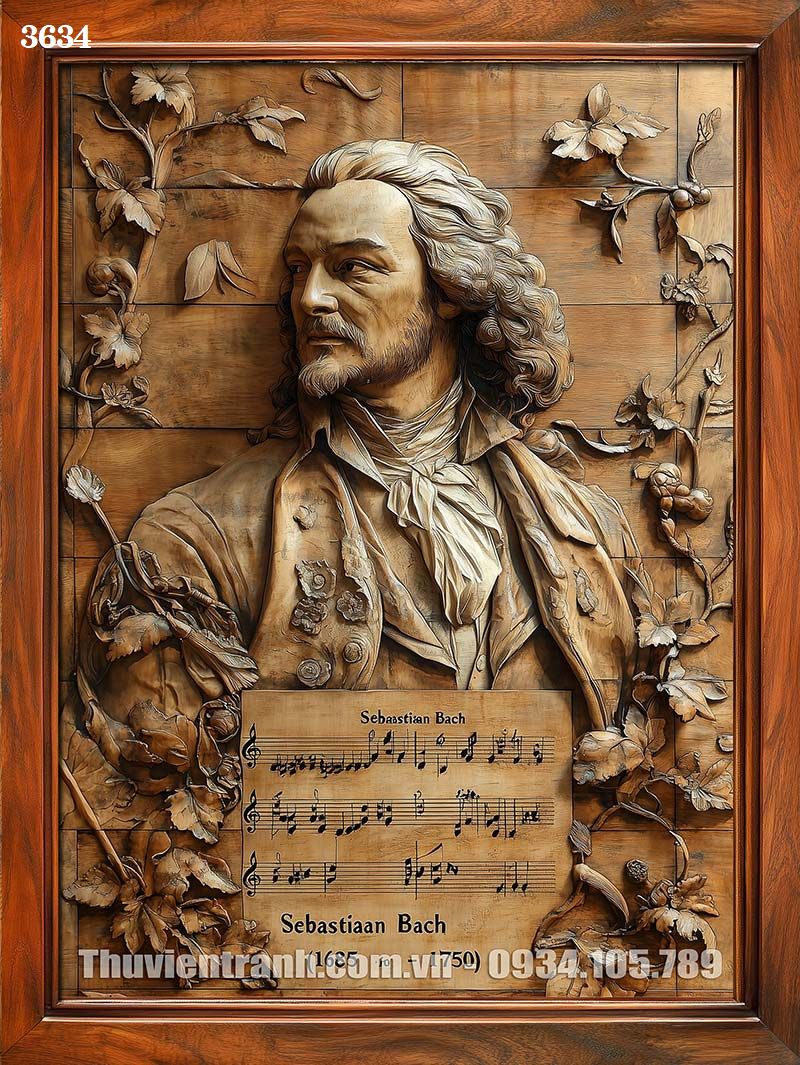 3634
Sebaastian Bach
Sebastiaan Bach
(1685 - 1750)
Thuvientranh.com.vn - 0934.105.789